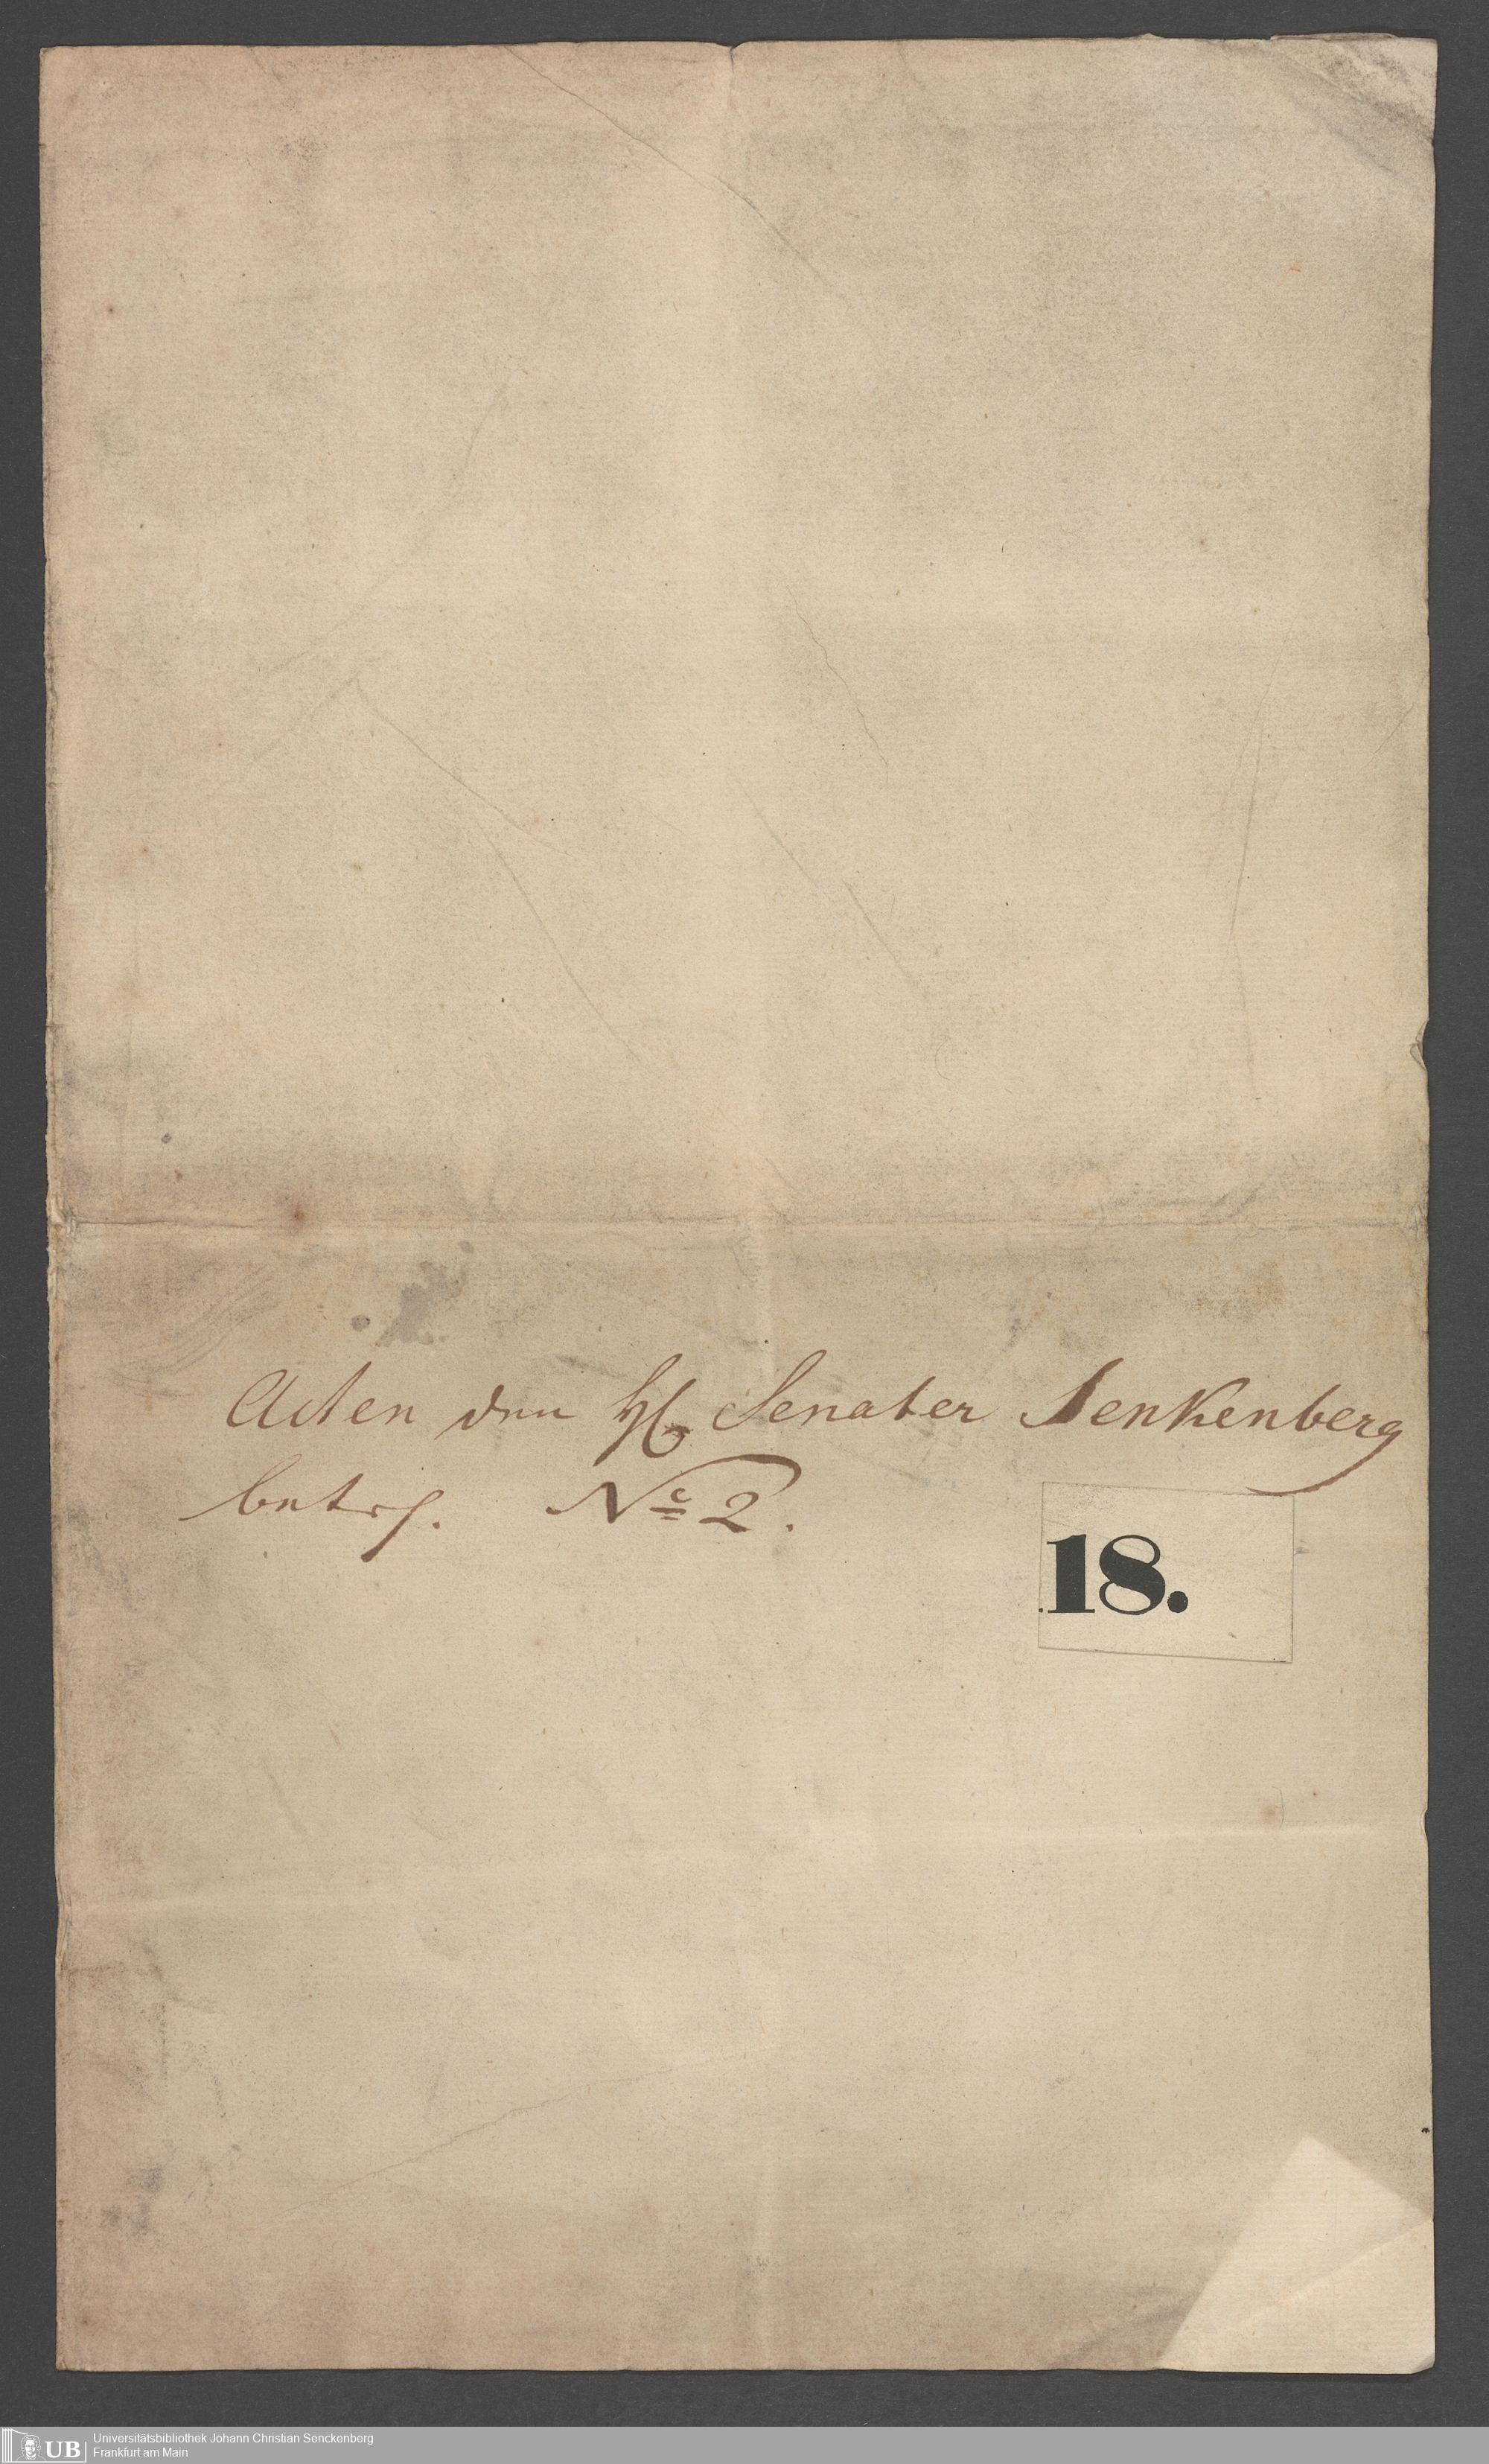 Acten den H. Senater Senkenberg
betrf. No 2.
18.
UB
Universitätsbibliothek Johann Christian Senckenberg
Frankfurt am Main